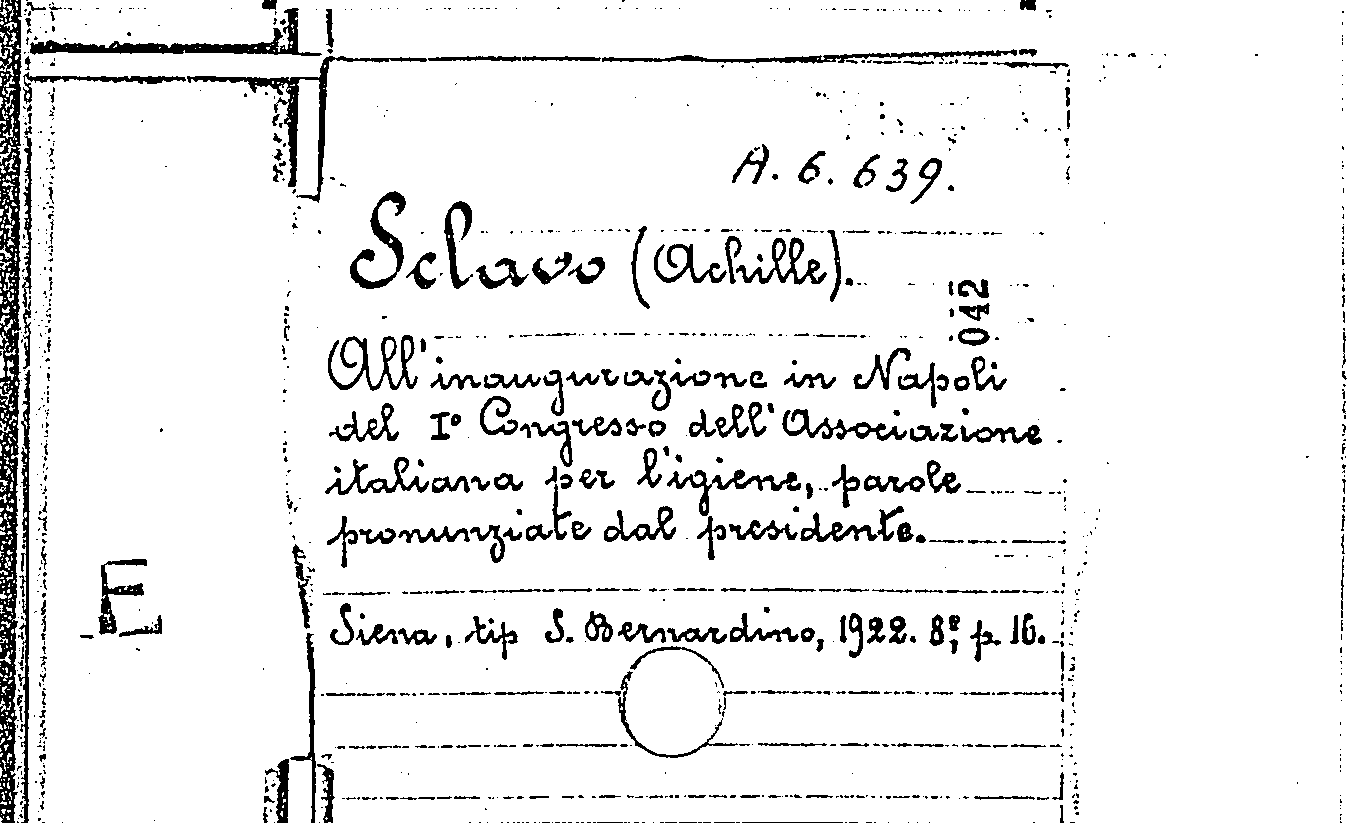 A. 6. 639.
Sclavo (Achille).
042
All'inaugurazione in Napoli
del I° Congresso dell'Associazione
italiana per l'igiene, parole
pronunziate dal presidente.
E
Siena, tip S. Bernardino, 1922. 8º, p. 16.